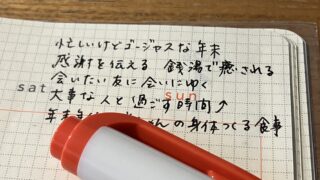 忙しいけどゴージャスな年末
感謝を伝える 銭湯で癒される
会いたい友に会いにゆく
sat sun
大事な人と過ごす時間↑
年末年 さんの身体つくる食事